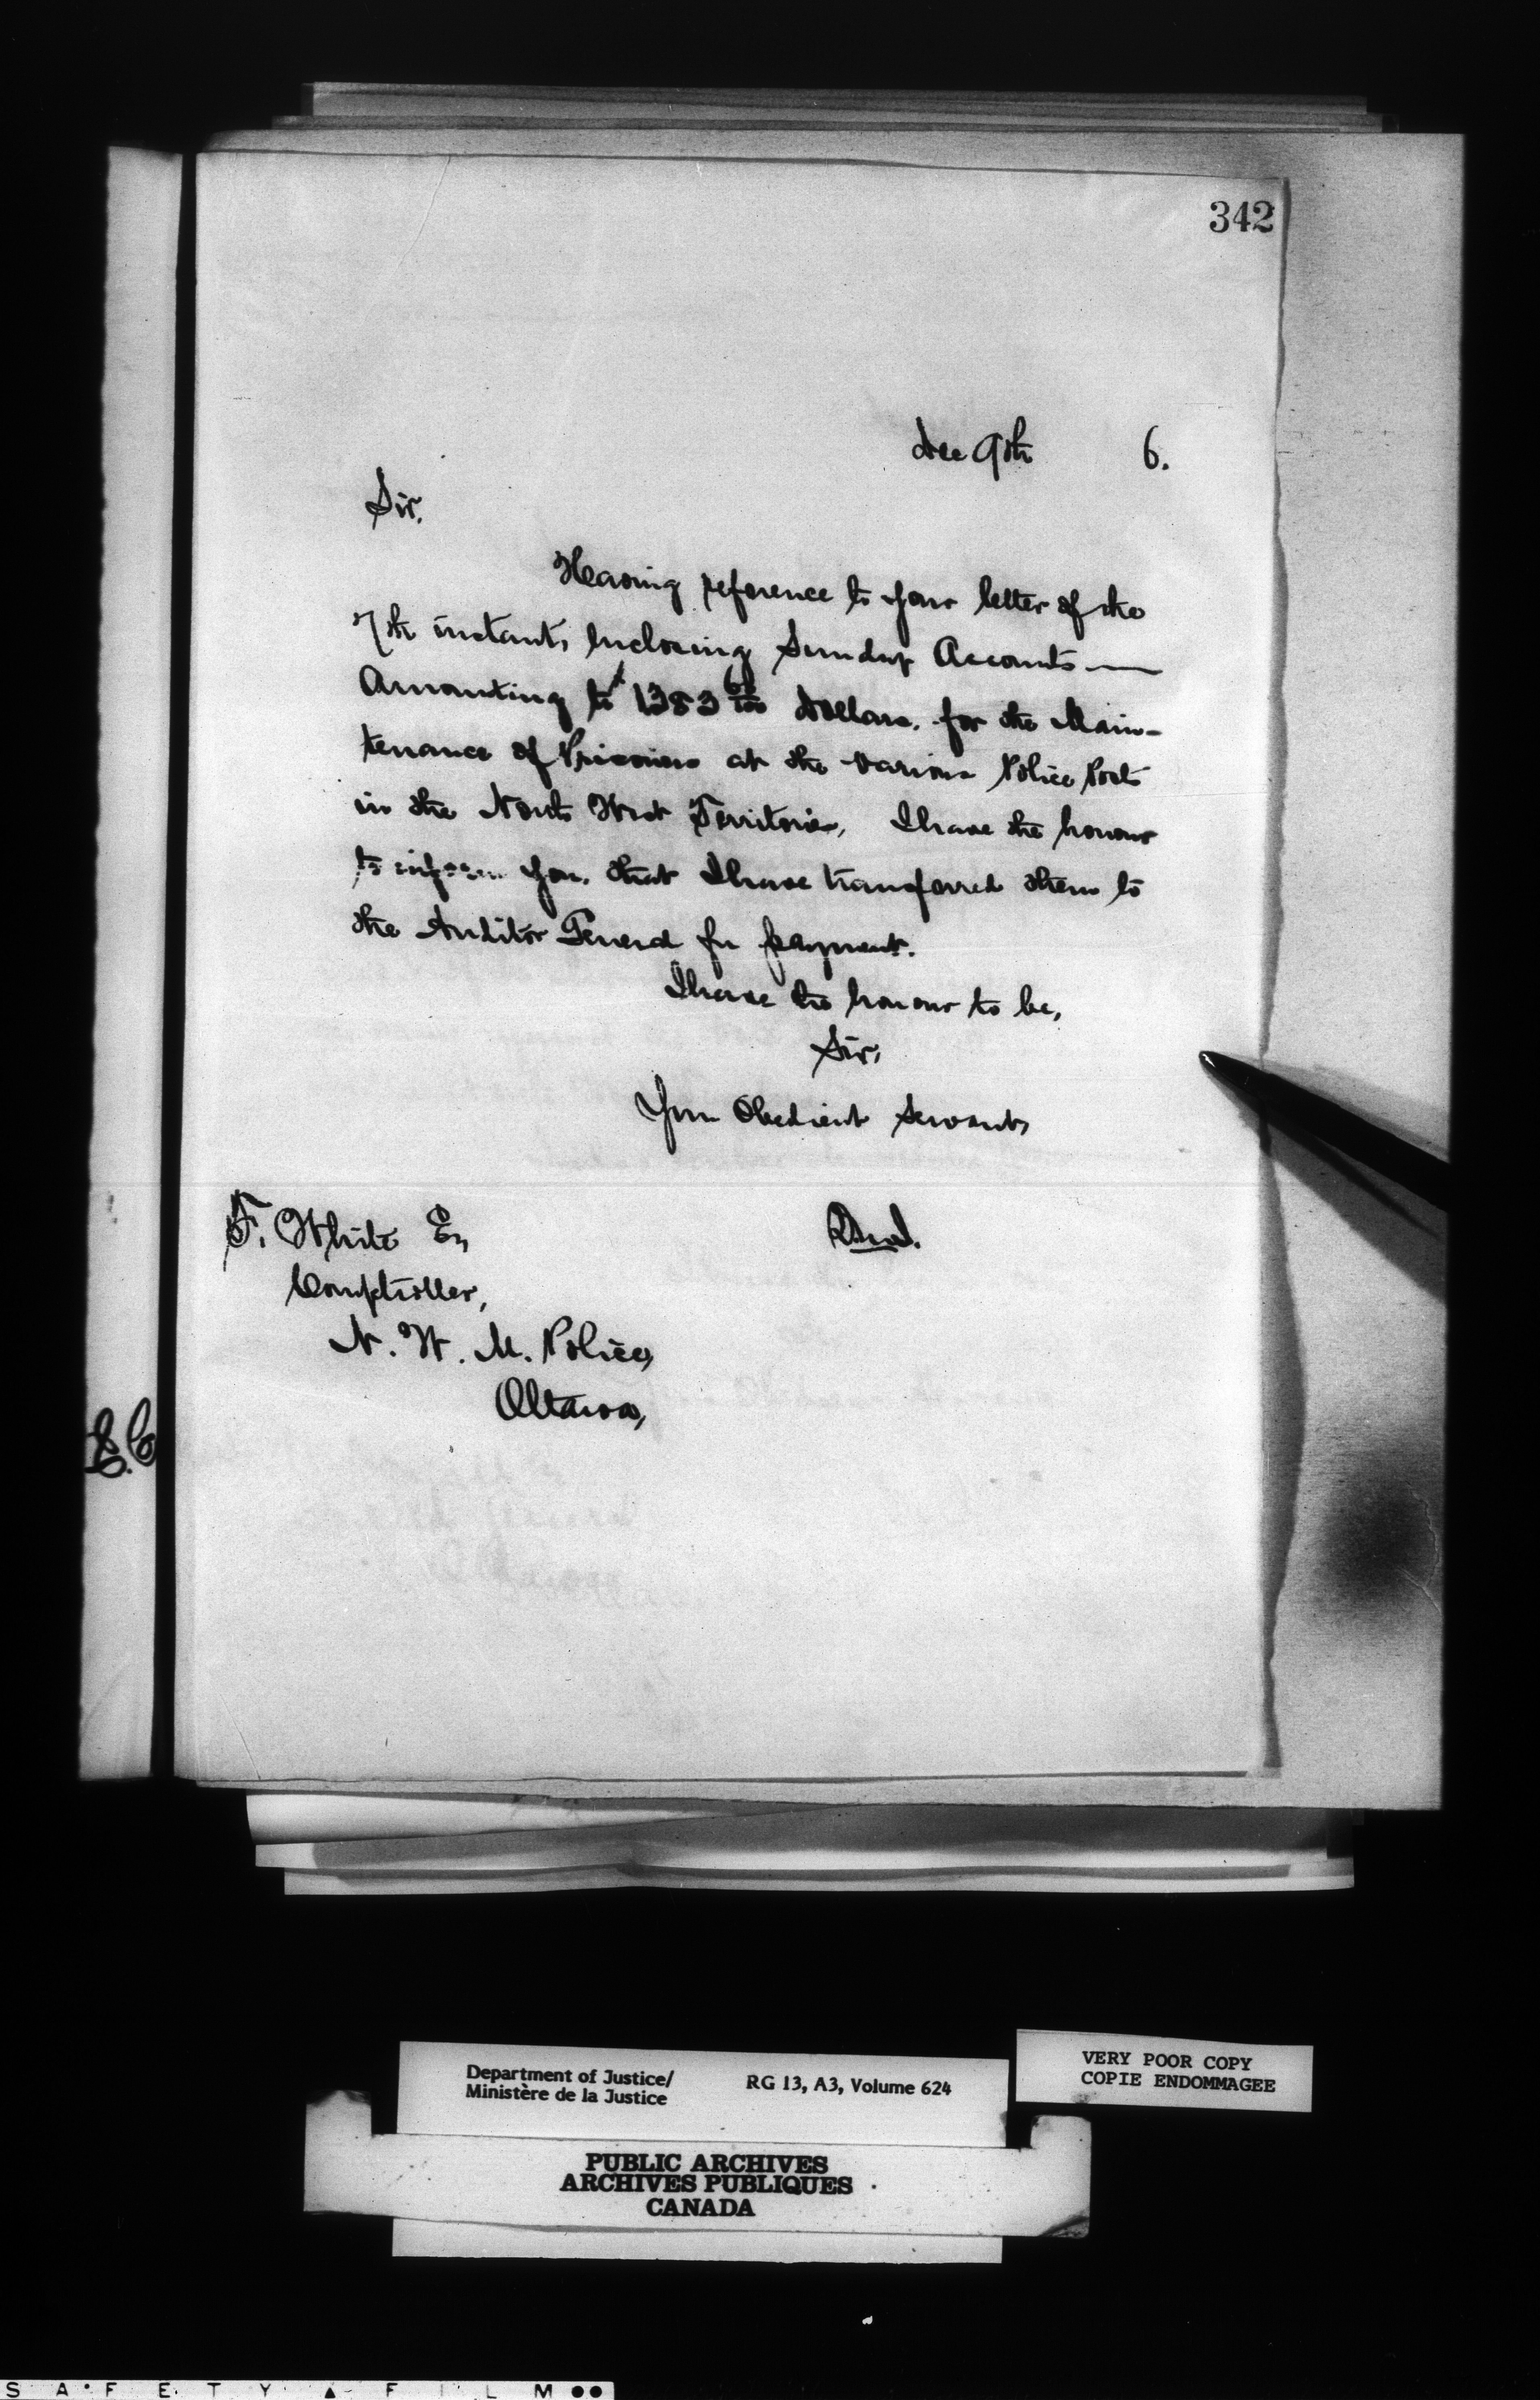 342
Dec 9th 6.
Sir,
Having reference to your letter of the
7th instant, Inclosing Sundry Accounts —
Amounting to $1383 Dollars, for the Main-
tenance of Prisoners at the various Police Posts
in the North West Territories, I have the honour
to inform you, that I have transferred them to
the Auditor General for payment.
I have the honour to be,
Sir,
Your Obedient Servant,
F. White Esq
Comptroller,
N. W. M. Police,
Ottawa,
Department of Justice/
Ministère de la Justice
RG 13, A3, Volume 624
VERY POOR COPY
COPIE ENDOMMAGEE
PUBLIC ARCHIVES
ARCHIVES PUBLIQUES
CANADA
SAFETY FILM